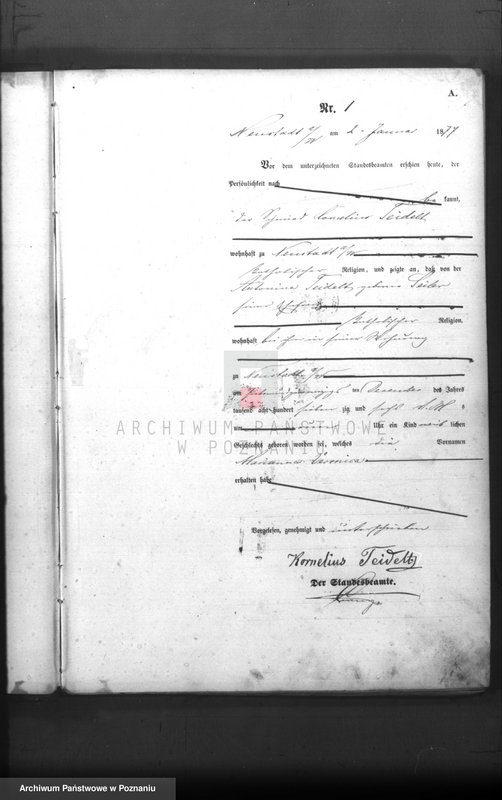 A.
Nr. 1
Neustadt a/W am 2. Januar 1877
Vor dem unterzeichneten Standesbeamten erschien heute, der
Persönlichkeit nach
be kannt,
der Schmied Cornelius Teidelt
wohnhaft zu Neustadt a/W
katholischer Religion, und zeigte an, daß von der
Antonina Teidelt, geborne
seiner Ehefrau
katholischer Religion,
wohnhaft bei ihm in seiner Wohnung
zu Neustadt a/W
am ten December des Jahres
tausend acht hundert sieben zig und sechs
um Uhr ein Kind weib lichen
Geschlechts geboren worden sei, welches die Vornamen
Marianna Veronica
erhalten habe
Vorgelesen, genehmigt und unterschrieben
Kornelius Teidelt
Der Standesbeamte.
ARCHIWUM PAŃSTWOWE
W POZNANIU
Archiwum Państwowe w Poznaniu